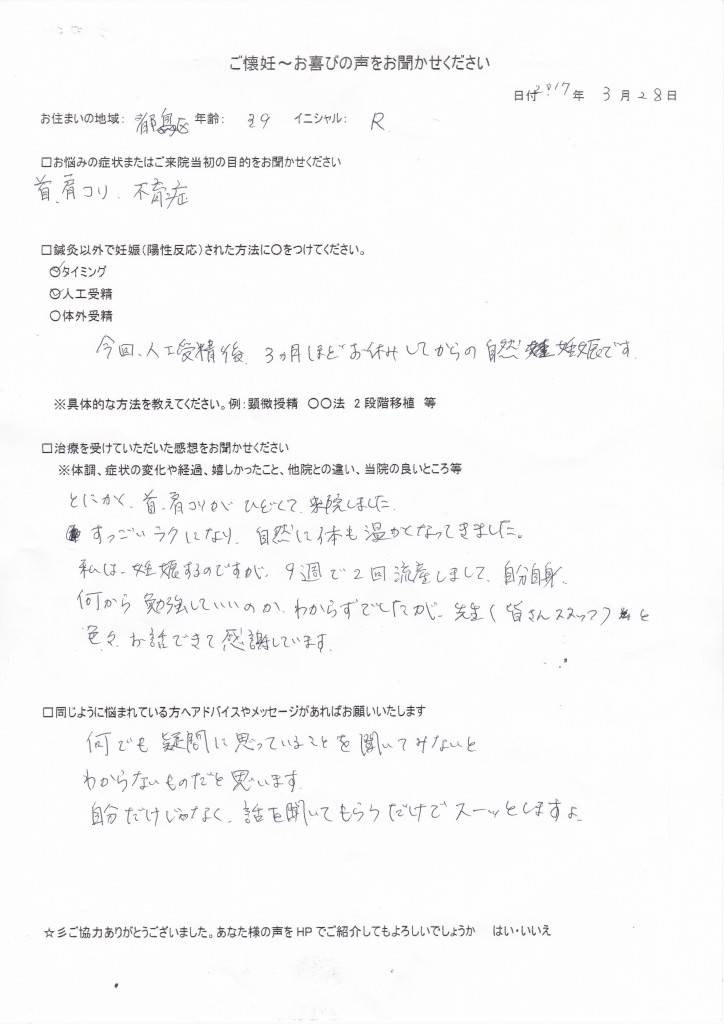 ご懐妊～お喜びの声をお聞かせください
日付2017年 3月28日
お住まいの地域: 都島区 年齢: 39 イニシャル: R
□お悩みの症状またはご来院当初の目的をお聞かせください
首、肩コリ、不育症
□鍼灸以外で妊娠(陽性反応)された方法に〇をつけてください。
〇タイミング
〇人工受精
〇体外受精
今回、人工受精後、3ヵ月ほどお休みしてからの自然妊娠です
※具体的な方法を教えてください。例:顕微授精 〇〇法 2段階移植 等
□治療を受けていただいた感想をお聞かせください
※体調、症状の変化や経過、嬉しかったこと、他院との違い、当院の良いところ等
とにかく、首、肩コリがひどくて、来院しました。
すっごいラクになり、自然に体も温かくなってきました。
私は、妊娠するのですが、9週で2回流産しまして、自分自身、
何から勉強していいのか、わからずでしたが、先生(皆さんスタッフ)と
色々お話できて感謝しています。
□同じように悩まれている方へアドバイスやメッセージがあればお願いいたします
何でも疑問に思っていることを聞いてみないと
わからないものだと思います。
自分だけじゃなく、話を聞いてもらうだけでスーッとしますよ。
☆彡ご協力ありがとうございました。あなた様の声をHPでご紹介してもよろしいでしょうか はい・いいえ